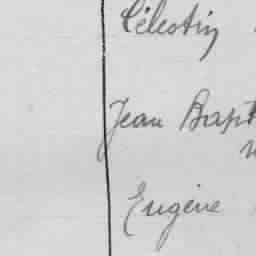 Célestin
Jean Bapt
Eugène